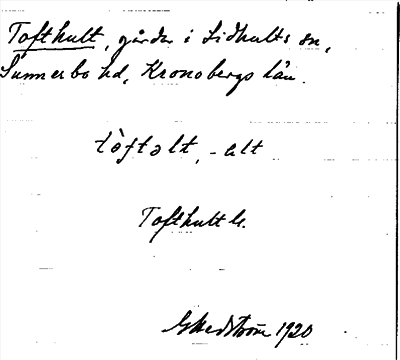 Tofthult, gårdar i Lidhults sn,
Sunnerbo hd, Kronobergs län.
tòftəlt, -ult
Tofthult
GHedström 1920